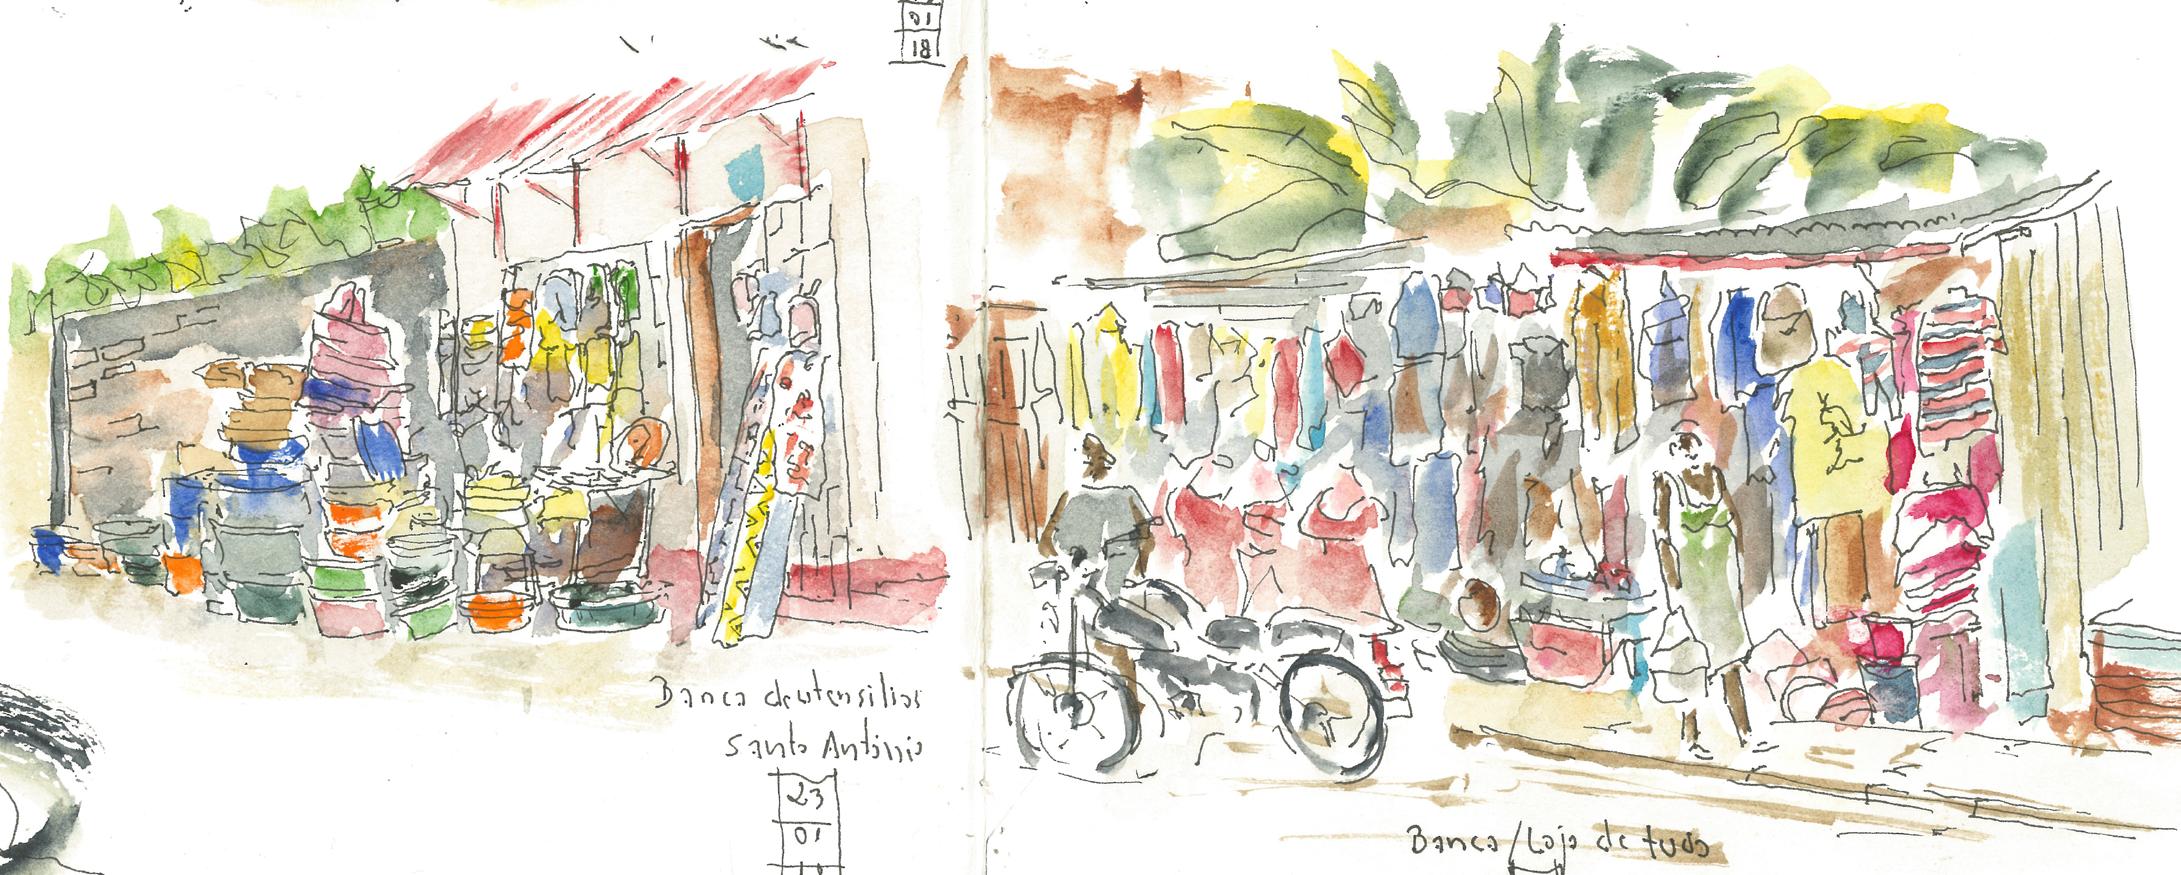 01
18
Banca de utensilios
Santo António
23
01
Banca/Loja de tudo